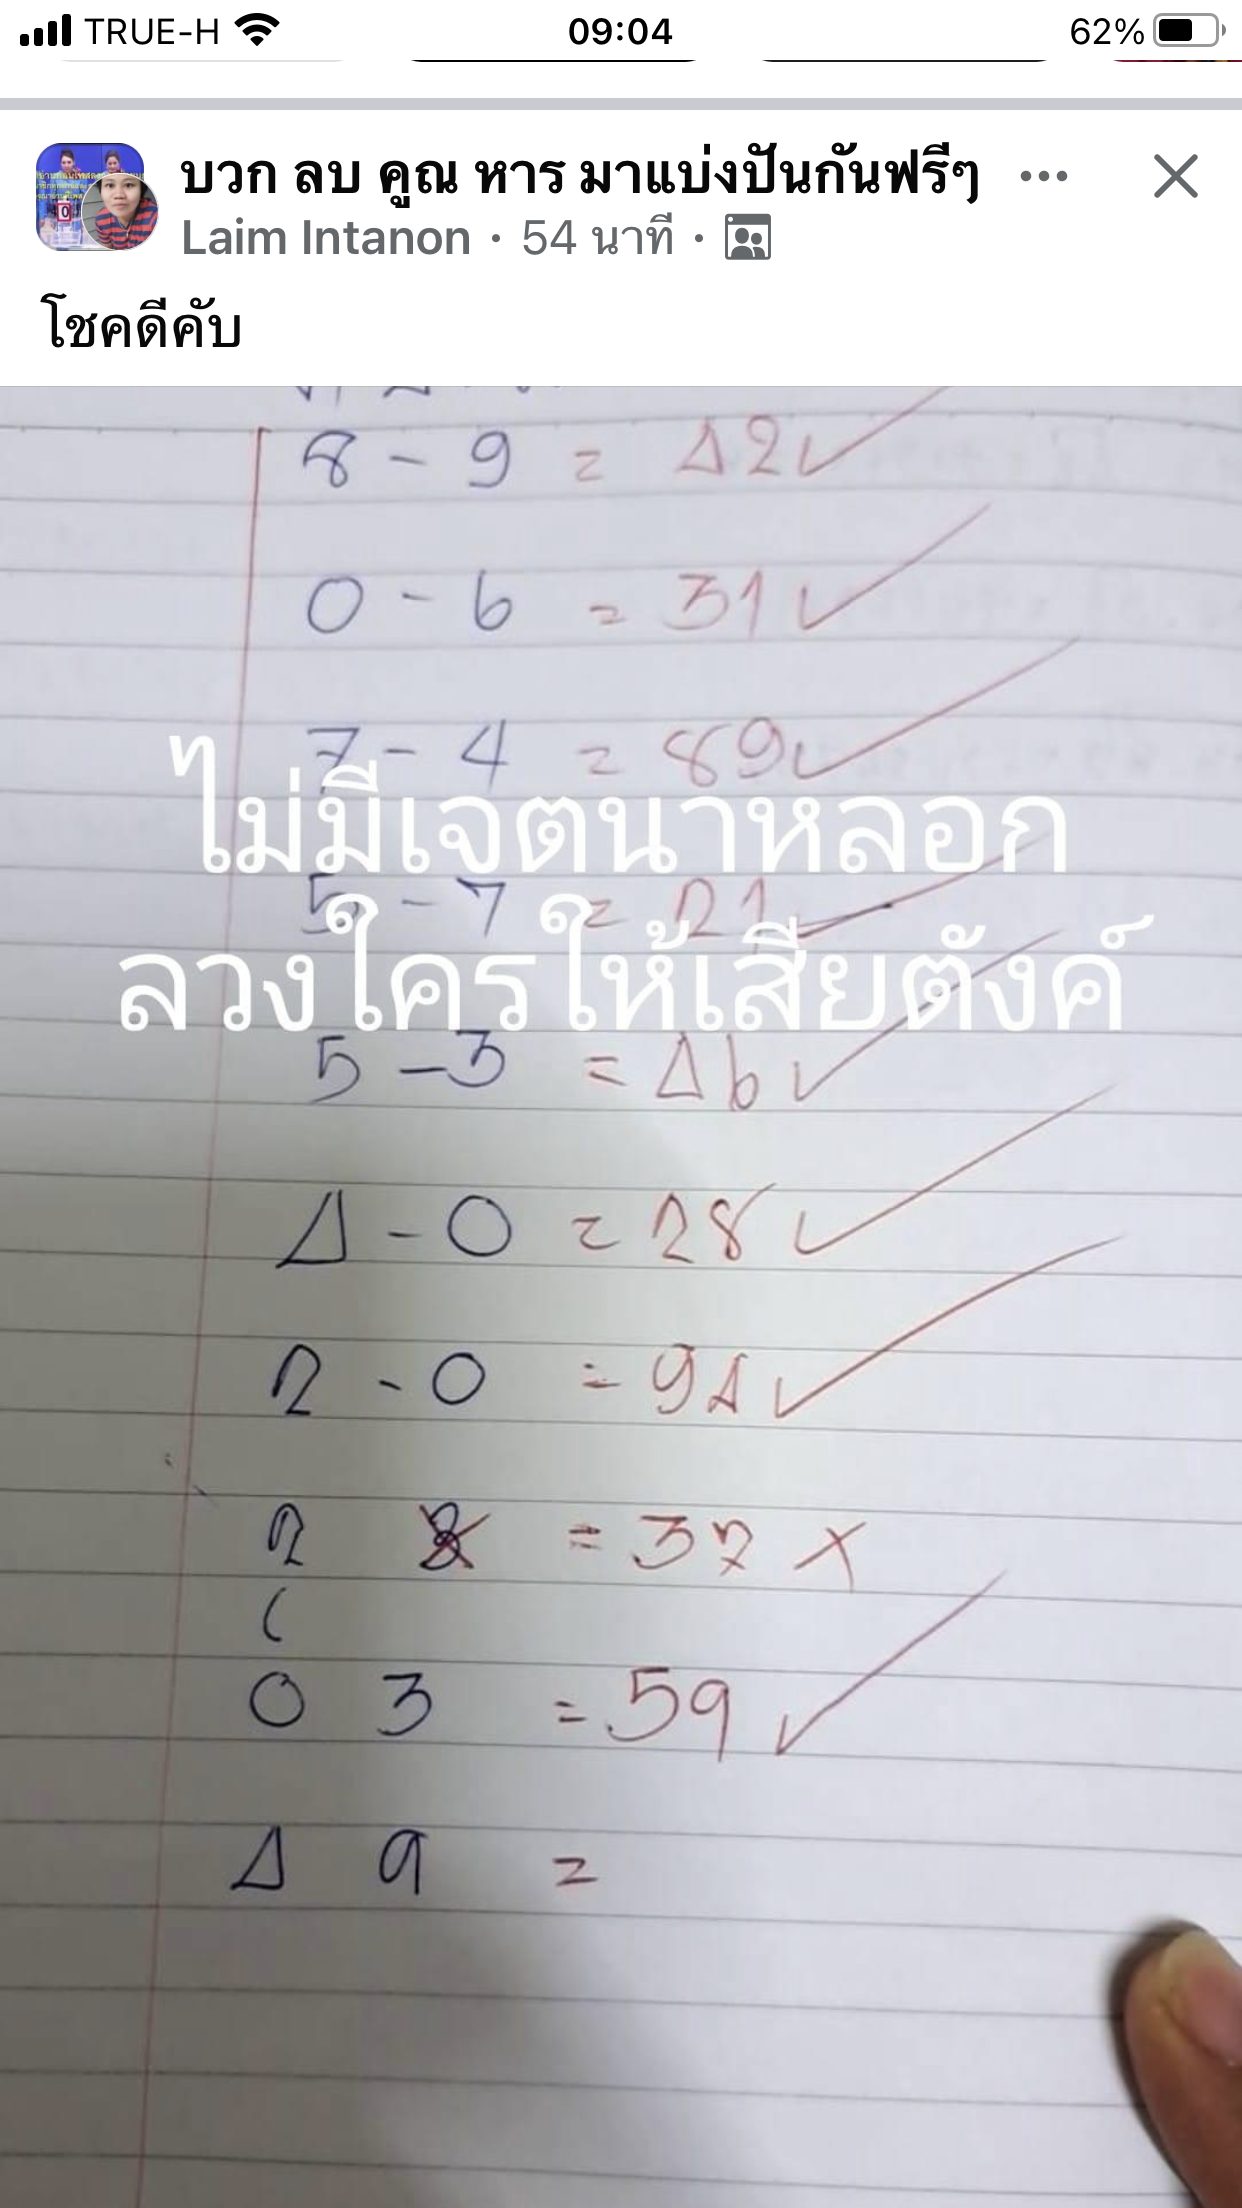 TRUE-H 09:04 62%
บวก ลบ คูณ หาร มาแบ่งปันกันฟรีๆ
Laim Intanon · 54 นาที ·
โชคดีคับ
8 - 9 = Δ2 ✓
0 - 6 = 31 ✓
7 - 4 = 89 ✓
ไม่มีเจตนาหลอก
5 - 7 = 21 ✓
ลวงใครให้เสียตังค์
5 - 3 = Δ6 ✓
Δ - 0 = 28 ✓
2 - 0 = 9Δ ✓
2 = 32 ✗
0 3 = 59 ✓
Δ 9 =